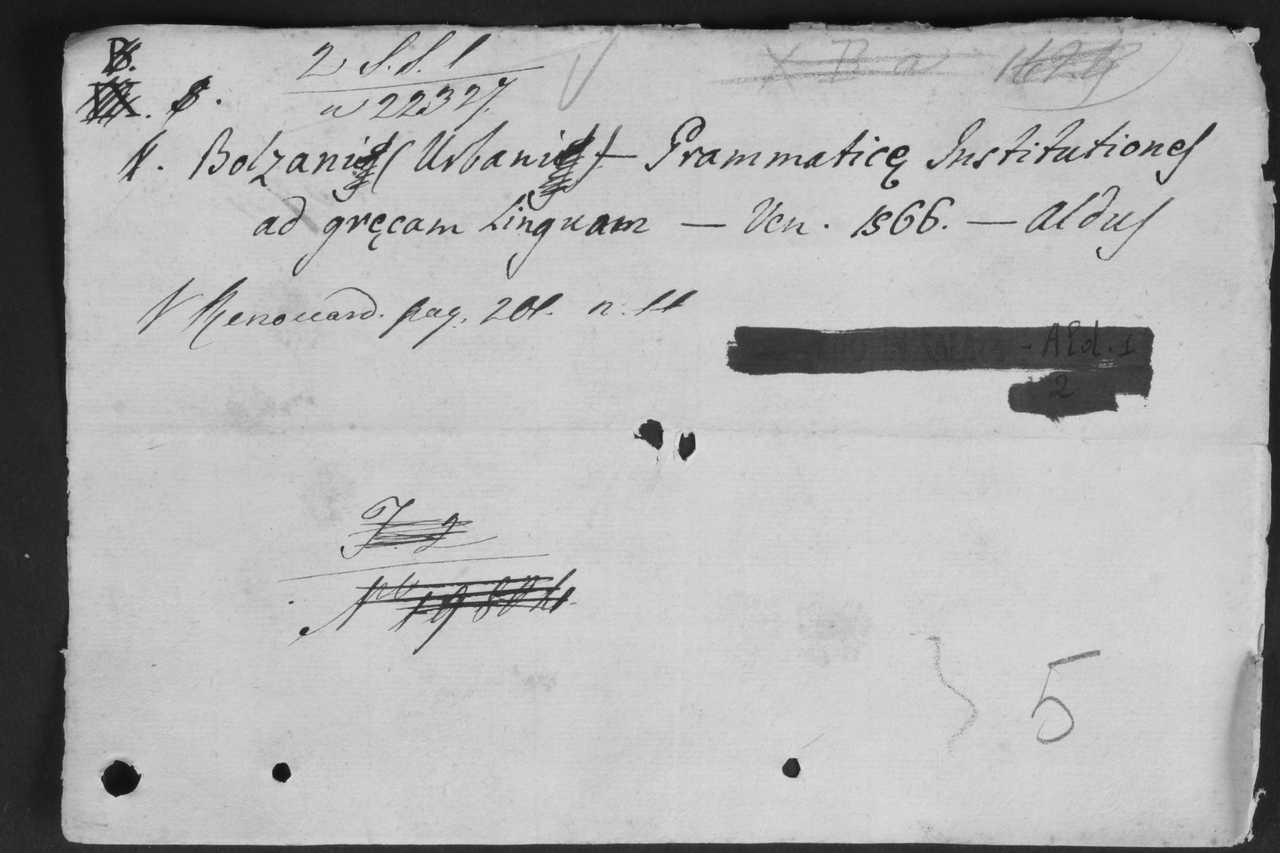 B.
2 S.S.1
a 22327.
Bolzani (Urbani) — Grammaticę Institutiones
ad gręcam Linguam — Ven. 1566. — Aldus
V Renouard. pag. 201. n. 11
Ald. 1
2
F. 2
No 19804
5